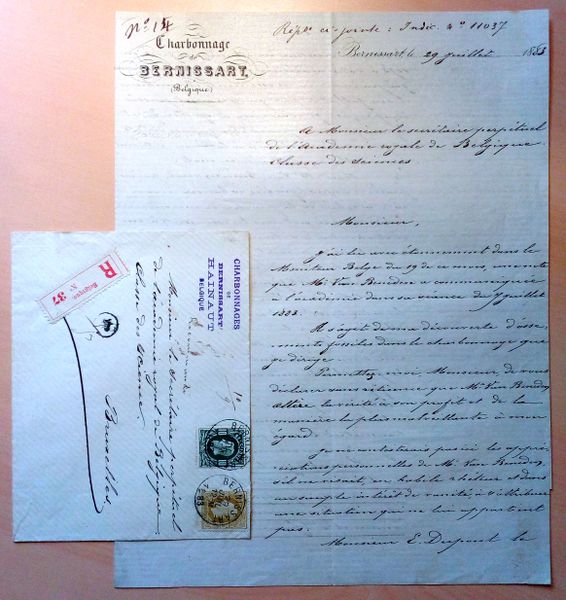 Nº 14
Charbonnage
de
BERNISSART,
(Belgique)
Répse ci-jointe : Indic. nº 11037
Bernissart, le 29 juillet 1883
A Monsieur le secrétaire perpétuel
de l'Académie royale de Belgique
Classe des sciences
Monsieur,
J'ai lu avec étonnement dans le
Moniteur Belge du 19 de ce mois, une note
que Mr Van Beneden a communiquée
à l'académie dans sa séance du 7 juillet
1883.
Il s'agit de ma découverte d'osse-
ments fossiles dans le charbonnage que
je dirige
Permettez-moi Monsieur, de vous
déclarer sans réticence que Mr Van Beneden
altère la vérité à son profit et de la
manière la plus malveillante à mon
égard.
Je ne contesterais pas ici les appré-
ciations personnelles de Mr Van Beneden
s'il n'arrivait, en habile rhéteur et dans
un simple intérêt de vanité, à s'attribuer
une situation qui ne lui appartient
pas.
Monsieur E. Dupont le
R
Bernissart
Nº 37
CHARBONNAGES
DE
BERNISSART
HAINAUT
BELGIQUE
Monsieur le Secrétaire perpétuel
de l'académie royale de Belgique
Classe des Sciences
Bruxelles
BERNISSART
1883